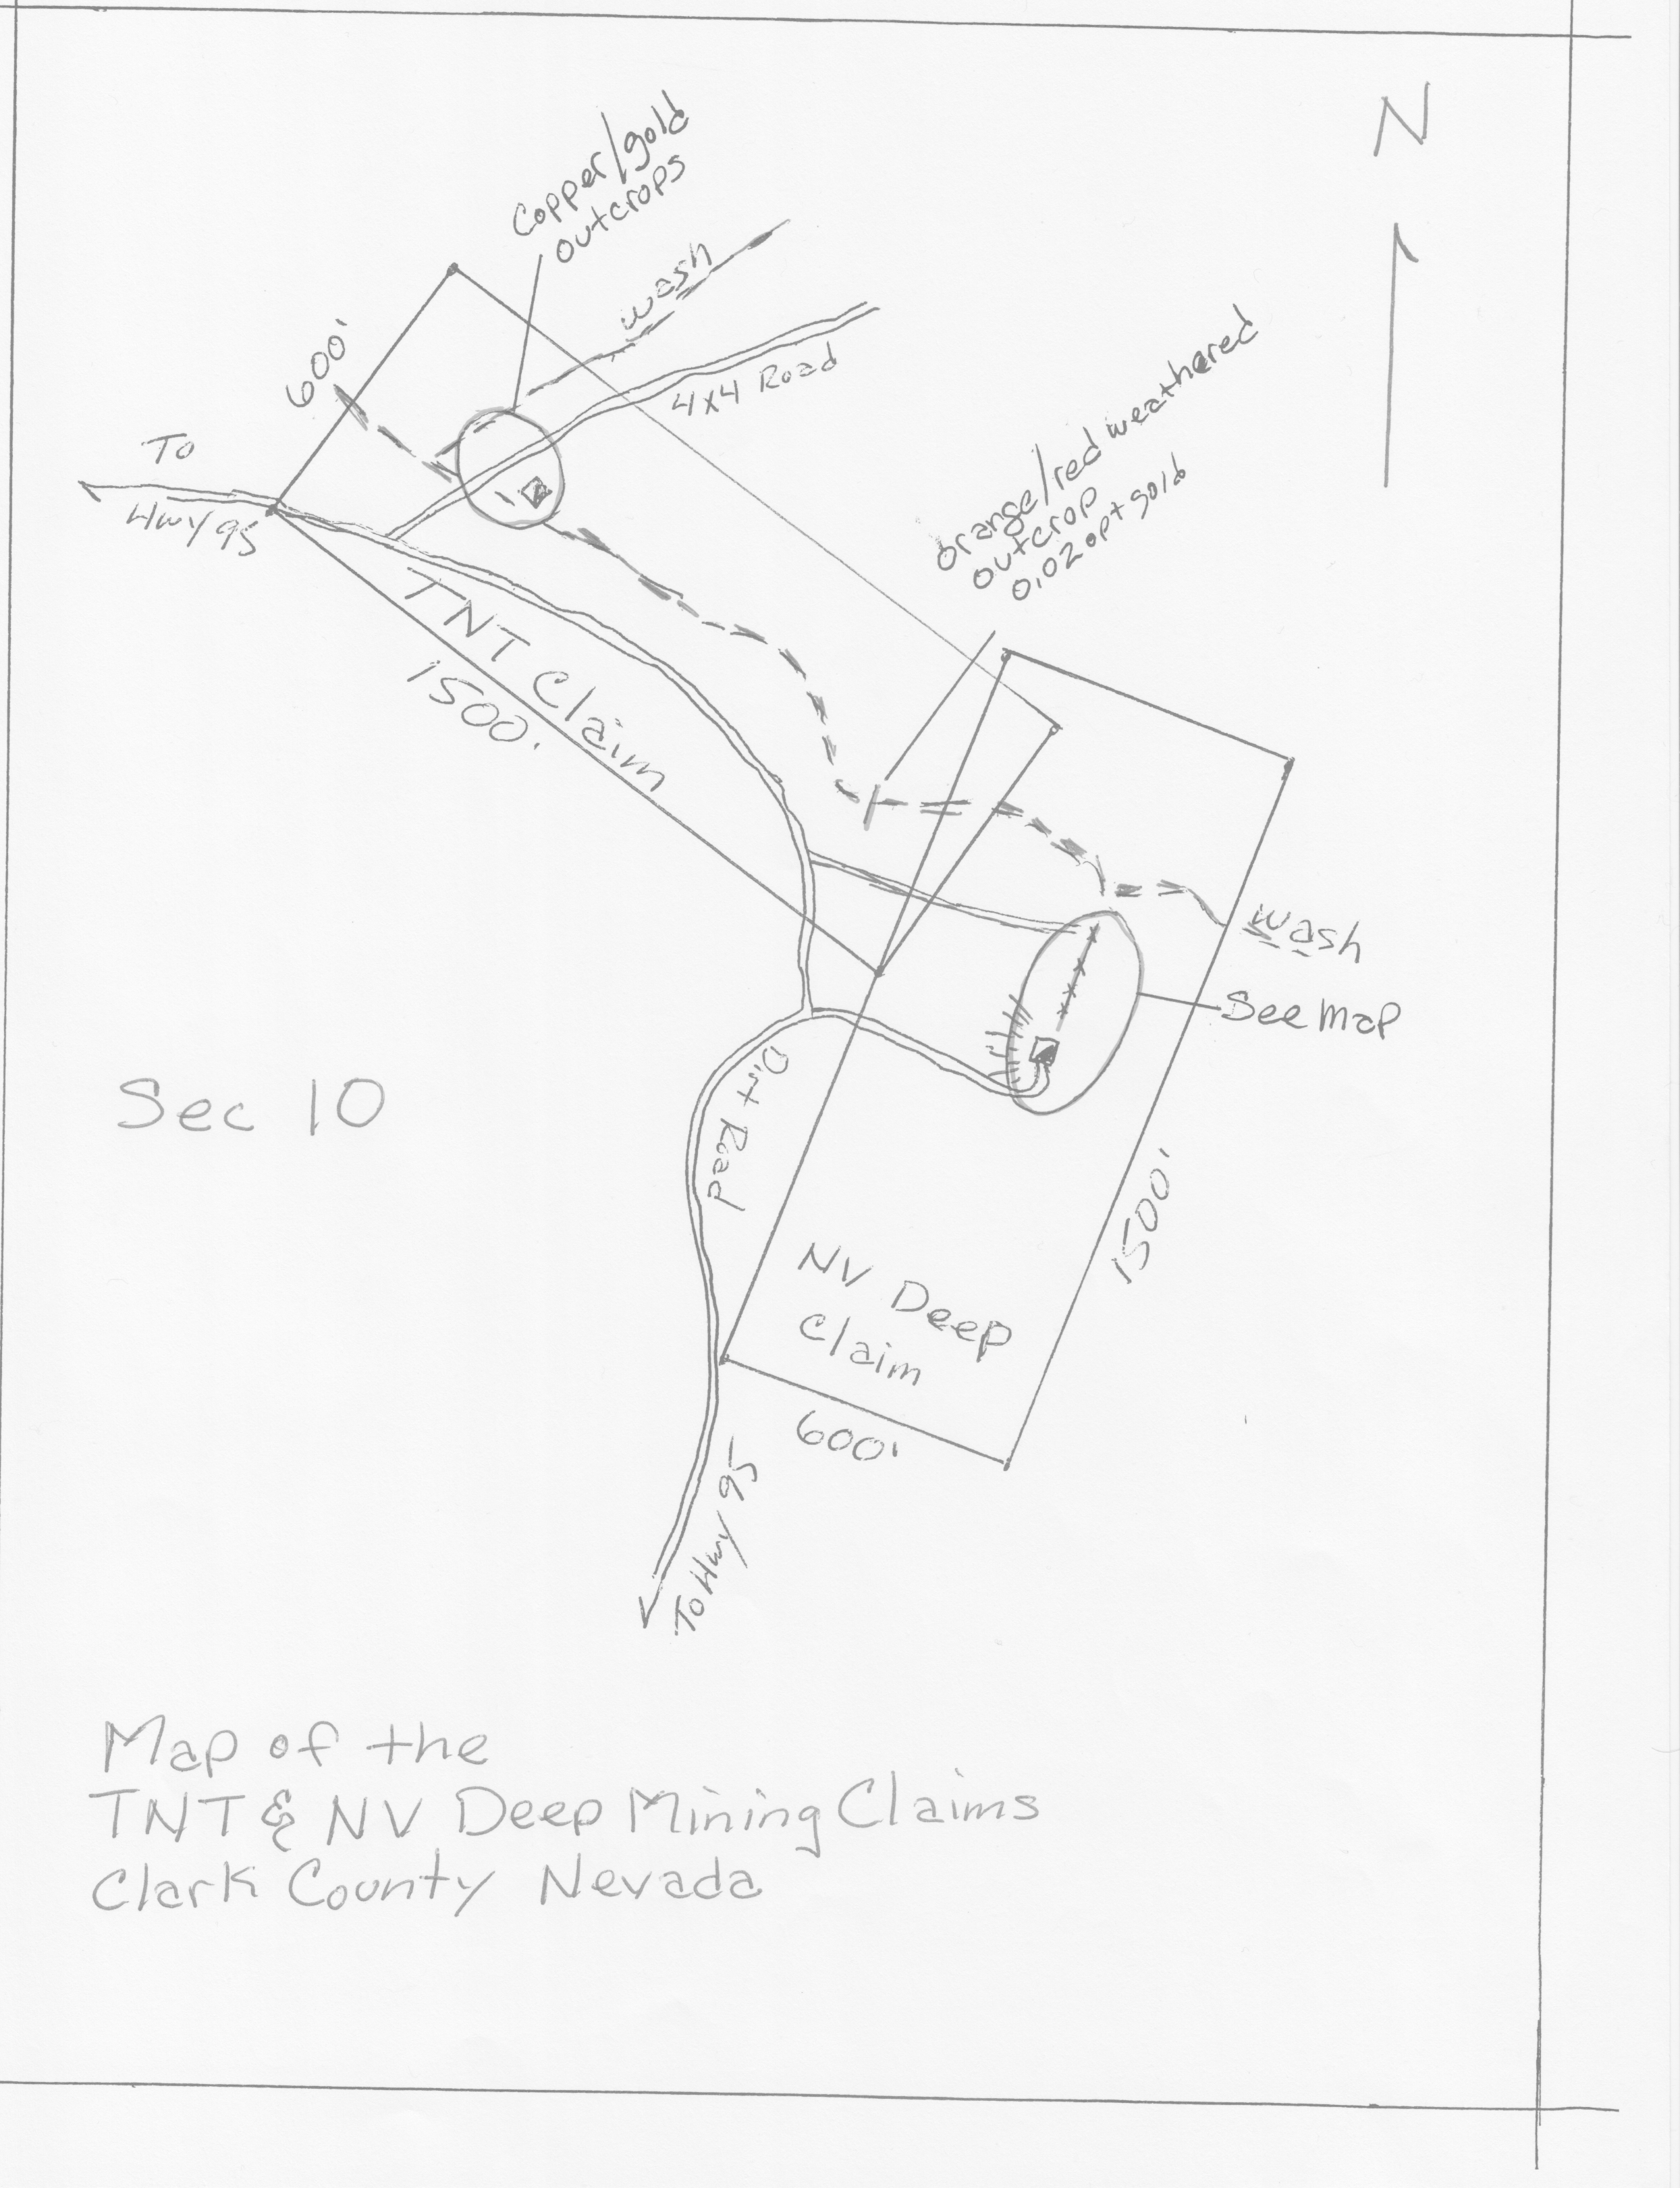 N
Copper/gold
outcrops
wash
600'
4x4 Road
To
Hwy 95
orange/red weathered
outcrop
0.02 opt gold
TNT Claim
1500'
wash
See map
Dirt Road
Sec 10
1500'
NV Deep
Claim
600'
To Hwy 95
Map of the
TNT & NV Deep Mining Claims
Clark County Nevada